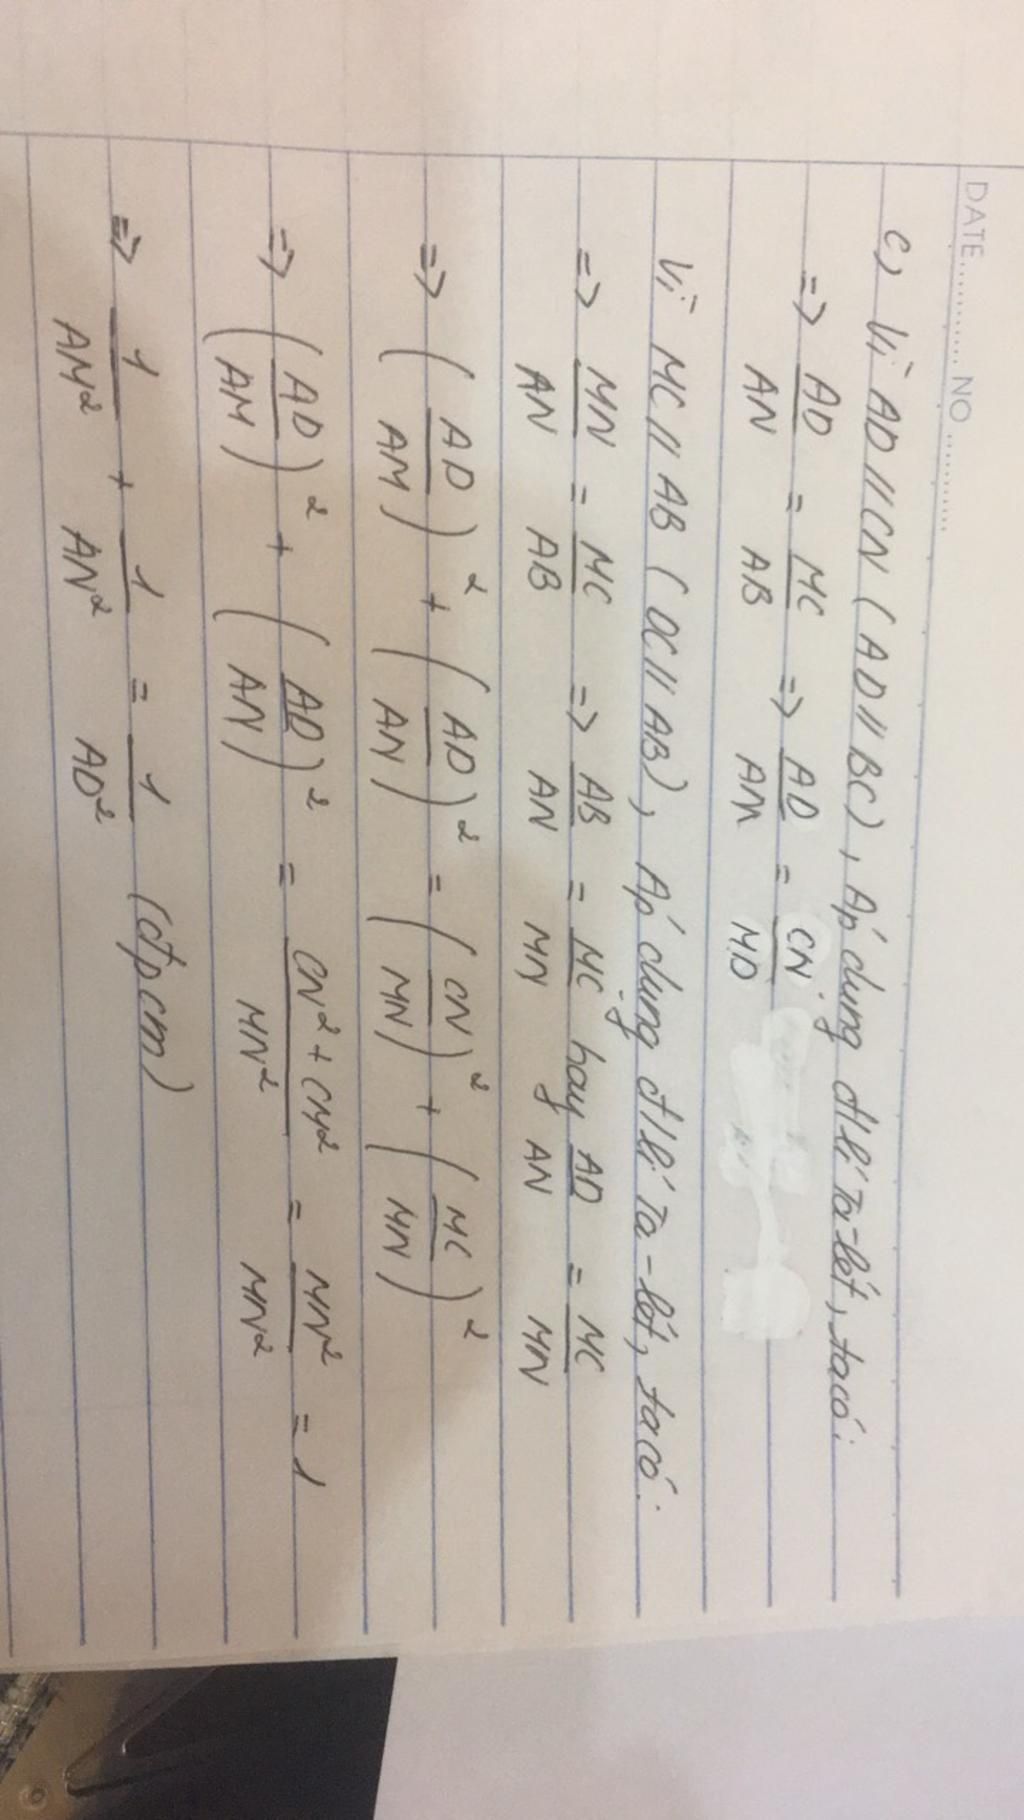 DATE............ NO ............
c, Vì AD // CN (AD // BC), Áp dụng đ/lí Ta-lét, ta có:
=> AD/AN = MC/AB => AD/AM = CN/MD
Vì MC // AB (DC // AB), Áp dụng đ/lí Ta-lét, ta có:
=> MN/AN = MC/AB => AB/AN = MC/MN hay AD/AN = MC/MN
=> (AD/AM)² + (AD/AN)² = (CN/MN)² + (MC/MN)²
=> (AD/AM)² + (AD/AN)² = CN² + CM²/MN² = MN²/MN² = 1
=> 1/AM² + 1/AN² = 1/AD² (đpcm)